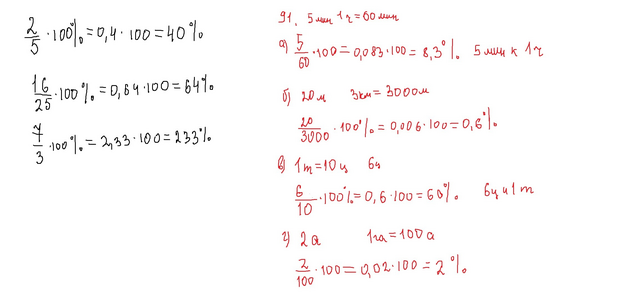 2/5 · 100% = 0,4 · 100 = 40%
16/25 · 100% = 0,64 · 100 = 64%
7/3 · 100% = 2,33 · 100 = 233%
91. 5 мин 1 ч = 60 мин
а) 5/60 · 100 = 0,083 · 100 = 8,3% 5 мин к 1 ч
б) 20 м 3 км = 3000 м
20/3000 · 100% = 0,006 · 100 = 0,6%
в) 1 т = 10 ц 6 ц
6/10 · 100% = 0,6 · 100 = 60% 6 ц и 1 т
г) 2 а 1 га = 100 а
2/100 · 100 = 0,02 · 100 = 2%